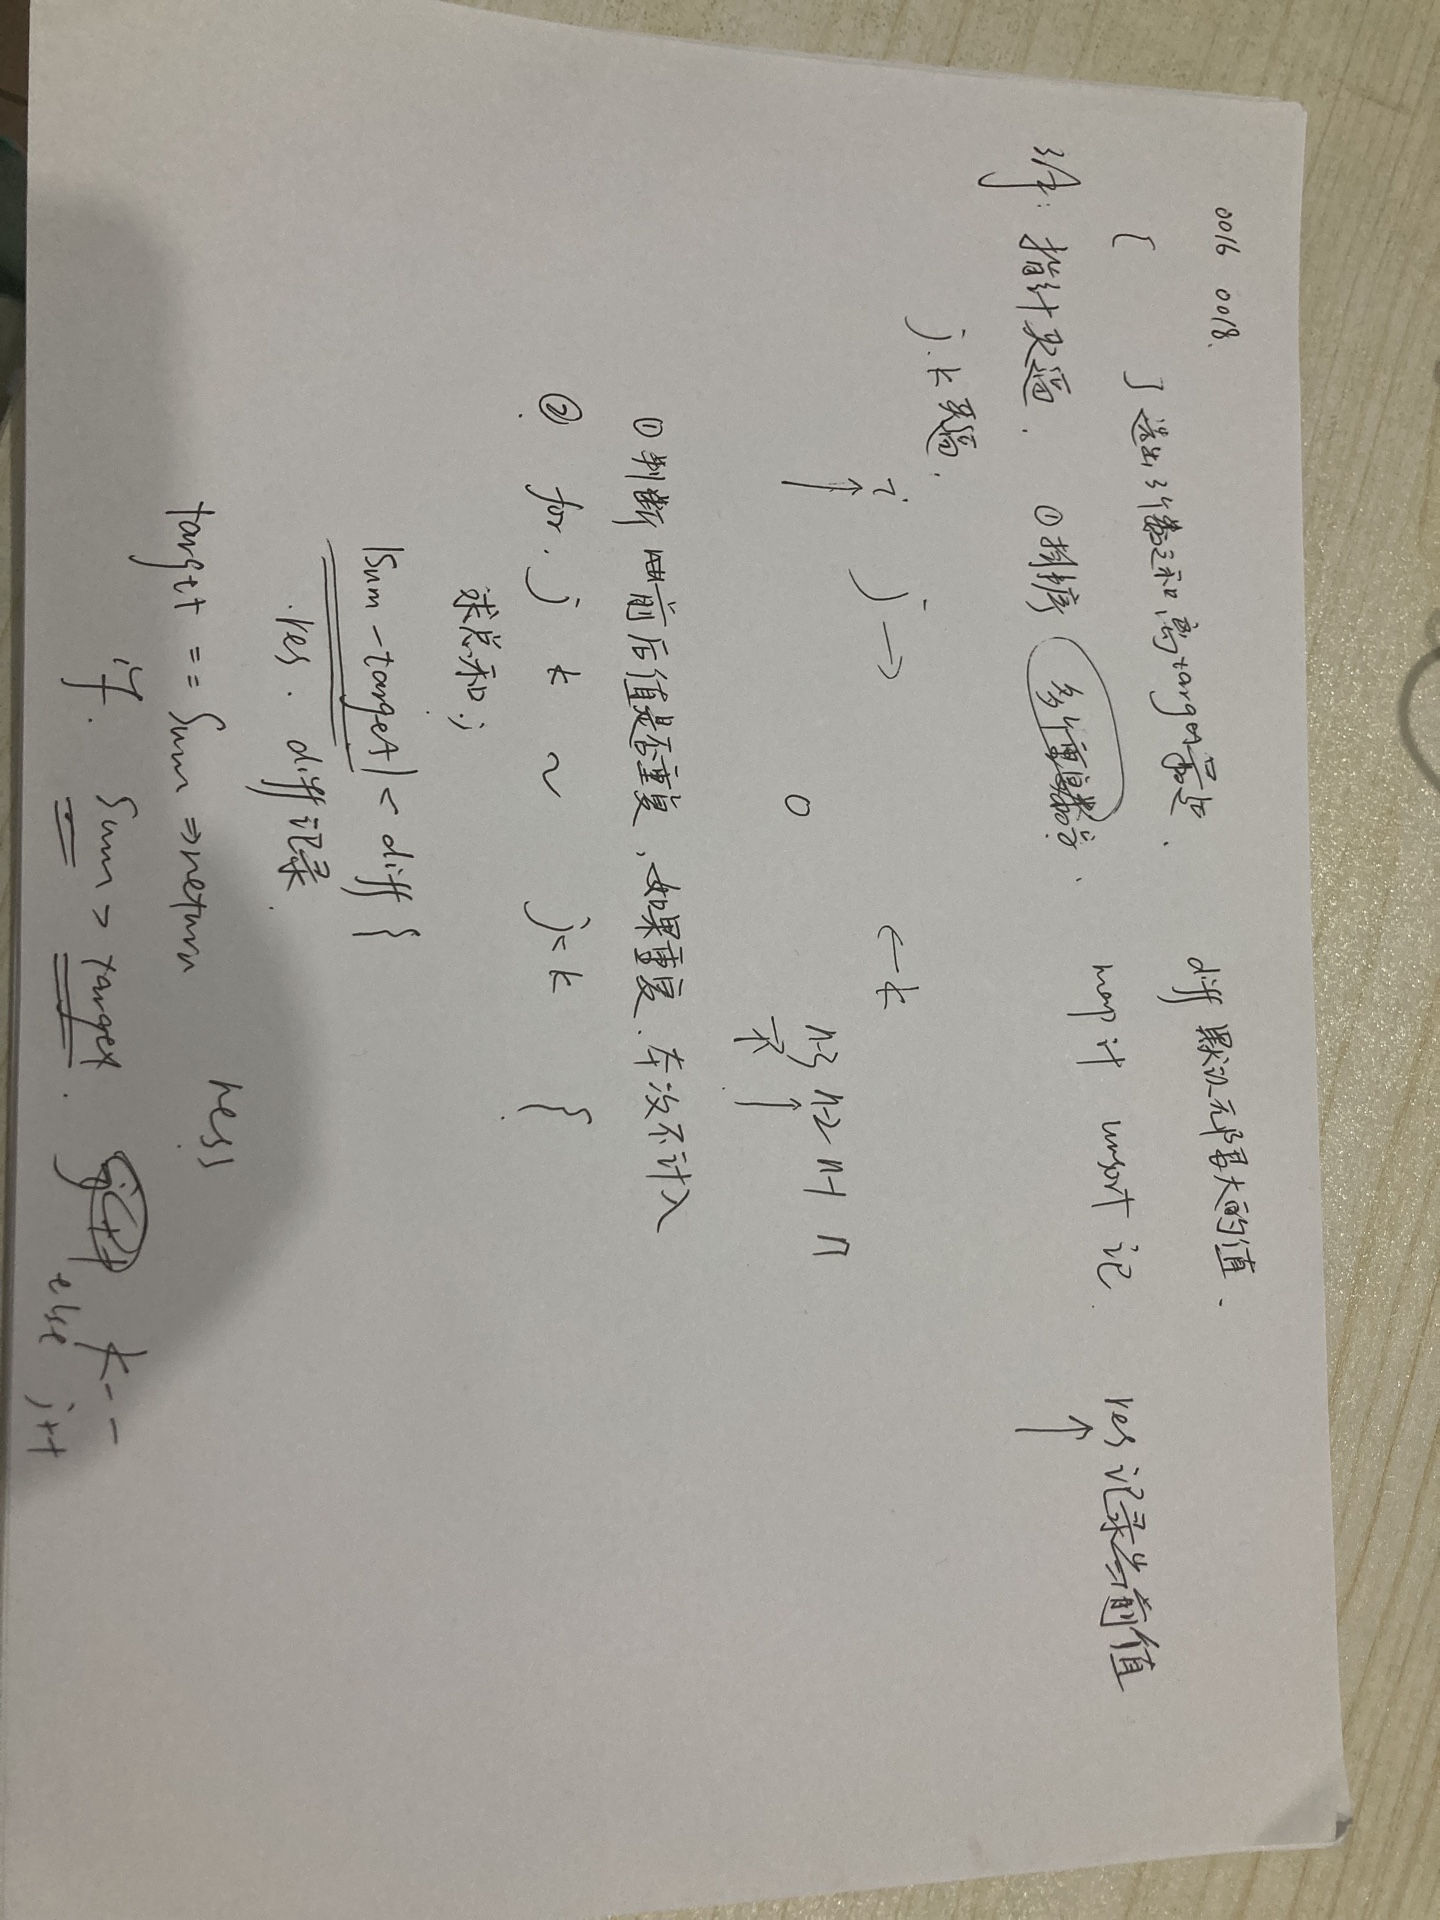 0016 0018.
[ ] 选出3个数之和离target最近.
diff 默认无限大的值.
3个: 指针夹逼. ①排序 多个重复数字.
map 计 unsort 记.
res 记录当前值
j.k 夹逼.
i j → ← k
0 n-3 n-2 n-1 n
①判断 前后值是否重复, 如果重复.本次不计入
② for. j k ~ j=k {
求总和;
|sum-target| < diff {
.res. diff 记录.
res
target == sum => return
if. sum > target. k--
else j++